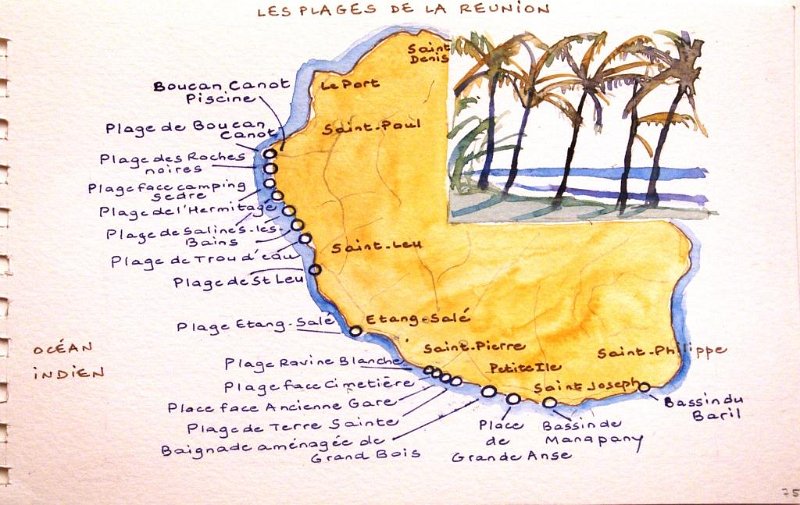 LES PLAGES DE LA REUNION
Saint
Denis
Le Port
Boucan Canot
Piscine
Saint-Paul
Plage de Boucan
Canot
Plage des Roches
noires
Plage face camping
Sedre
Plage de l'Hermitage
Plage de Salines-les-
Bains
Saint-Leu
Plage de Trou d'eau
Plage de St Leu
Plage Etang-Salé
Etang-Salé
OCÉAN
INDIEN
Saint-Pierre
Saint-Philippe
Plage Ravine Blanche
Petite Ile
Plage face Cimetière
Saint Joseph
Place face Ancienne Gare
Bassin du
Baril
Plage de Terre Sainte
Baignade aménagée de
Grand Bois
Place
de
Grande Anse
Bassin de
Manapany
75